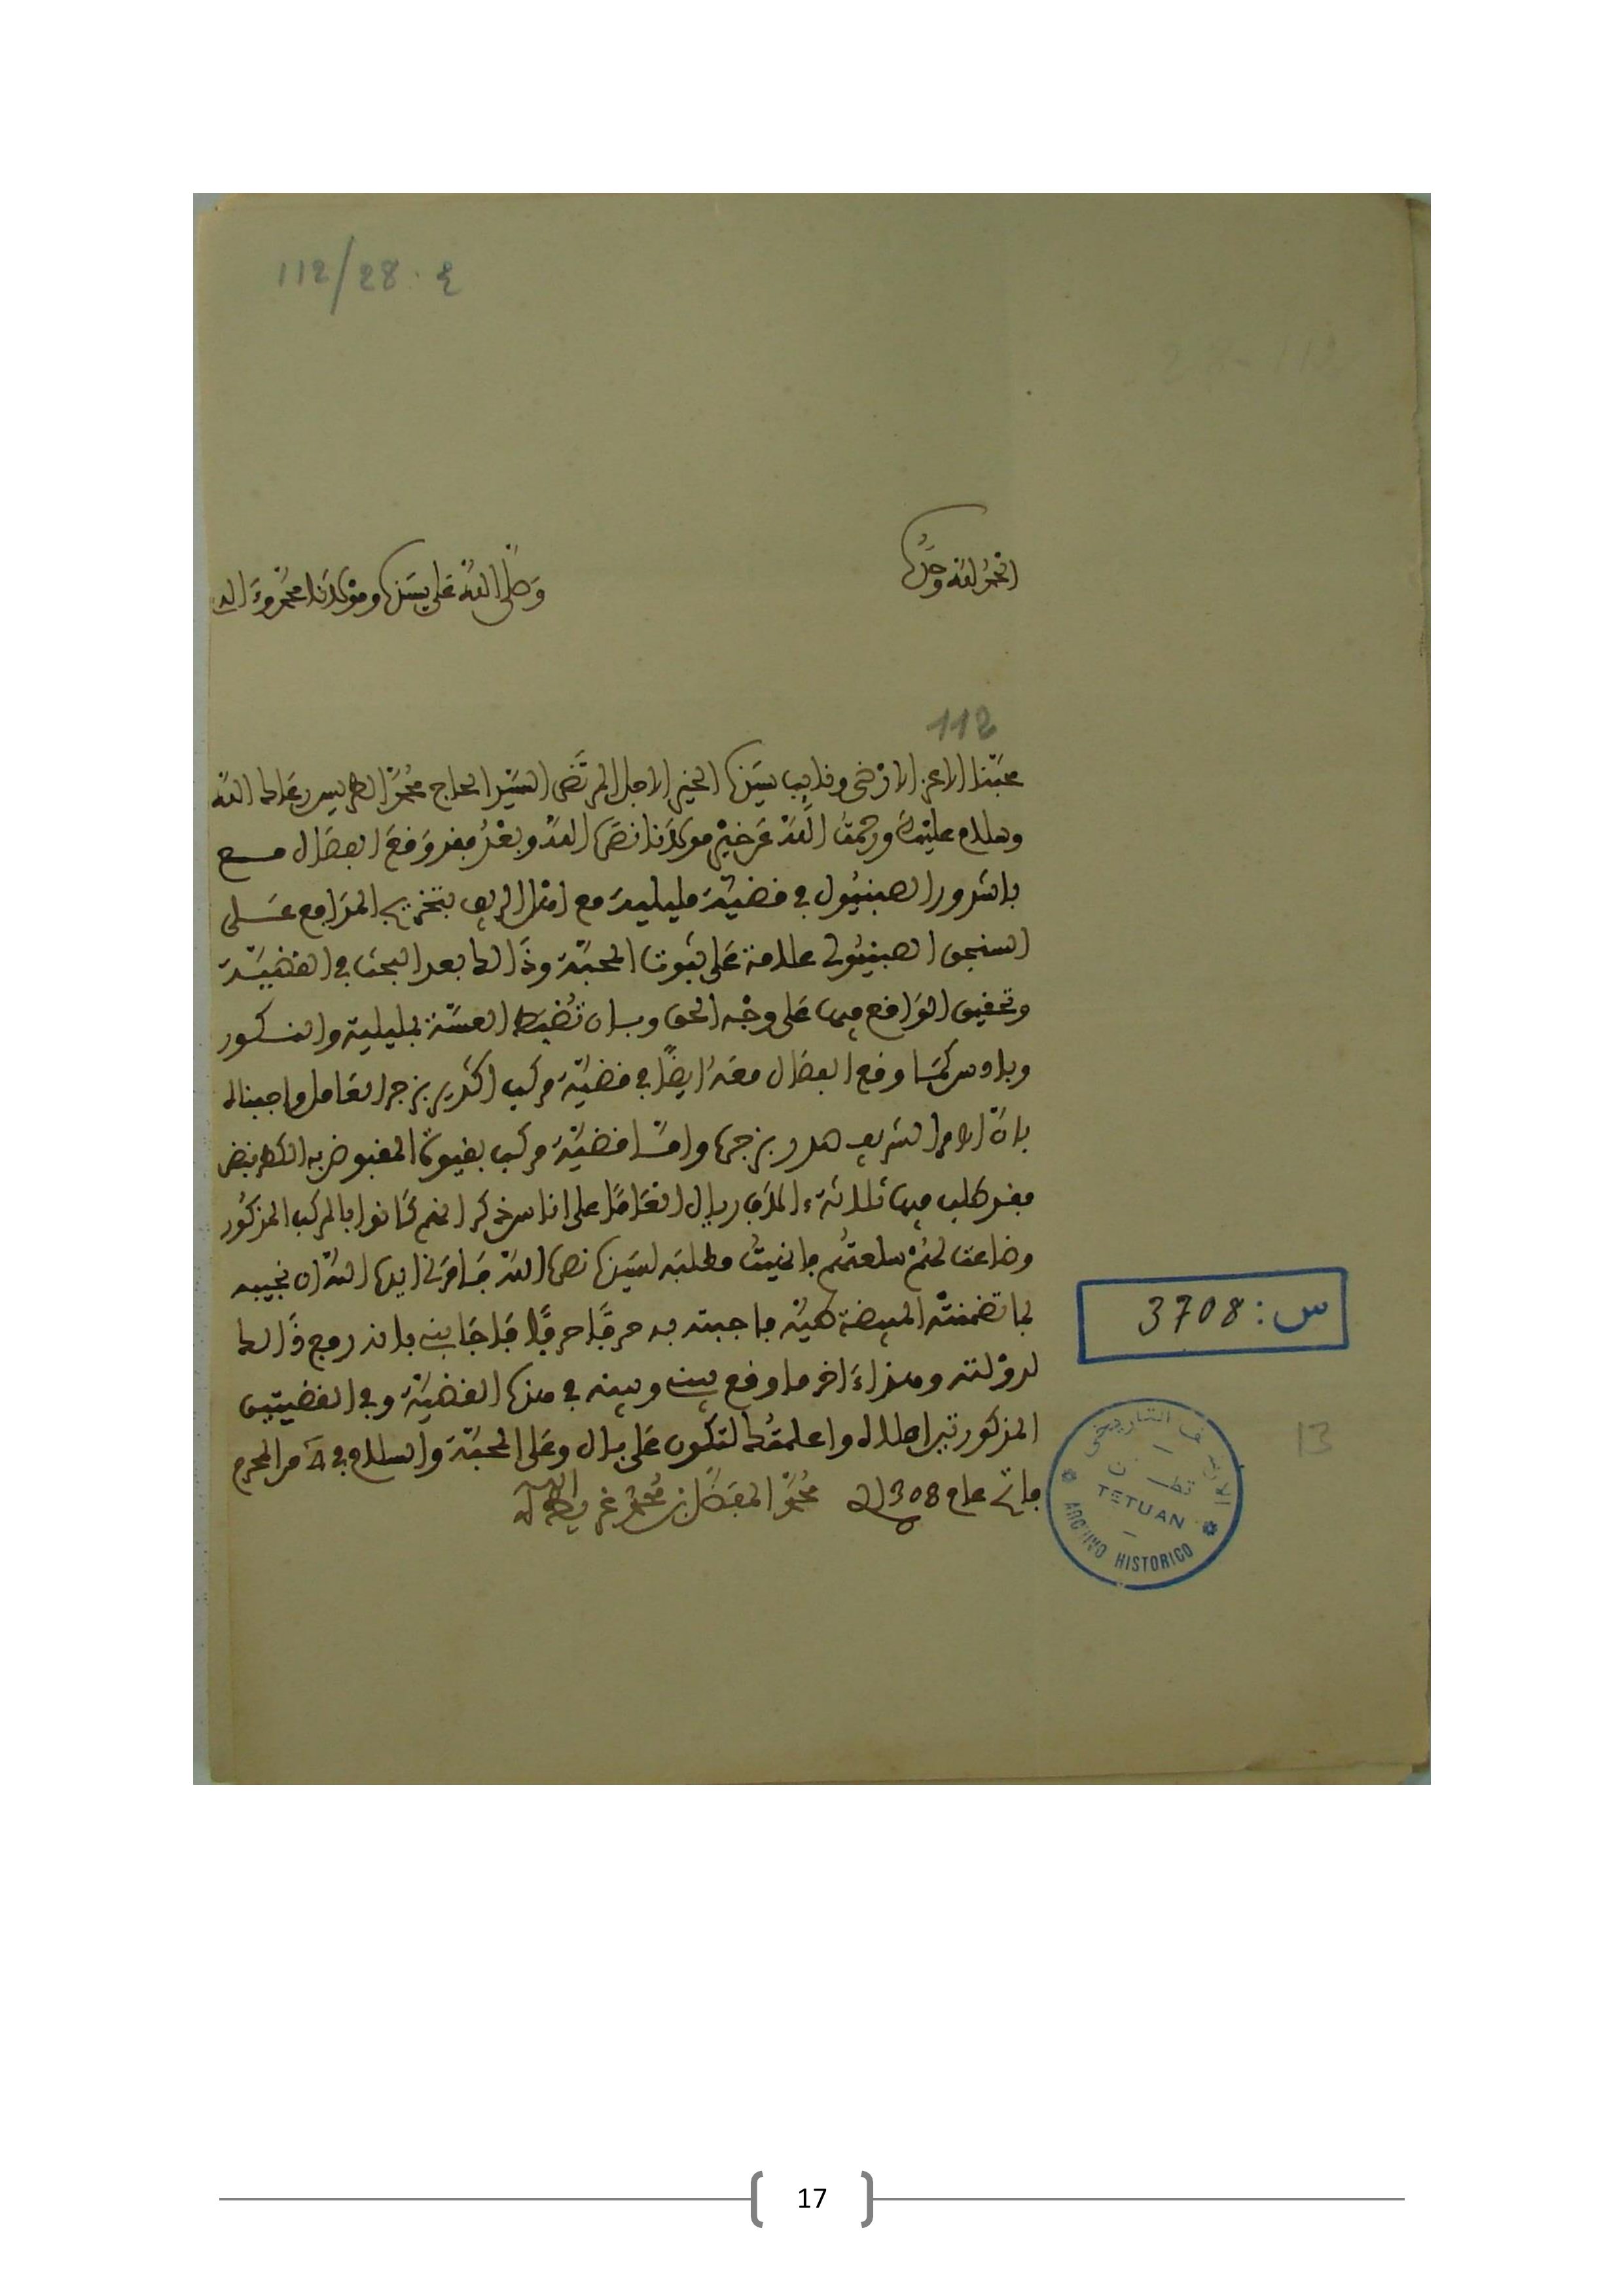 112/28. ع
28-112
الحمد لله وحده
وصلى الله على سيدنا ومولانا محمد وءاله
112
محبنا الاعز الارضى ونايب سيدنا الخير الاجل المرتضى السيد الحاج محمد الطريس رعاك الله
وسلام عليك ورحمت الله عن خير مولانا نصره الله وبعد فقد وقع الفصال مع
باشدور الصبنيول في قضية مليلية مع اهل الريف بتخريج المدافع على
السنجق الصبنيولي علامة على ثبوت المحبة وذالك بعد البحث في القضية
وتحقيق الواقع فيها على وجه الحق وبان تضبط العسة بمليلية والنكور
وبادس كما وقع الفصال معه ايضا في قضية مركب بزجر العامل واجبناه
بان الامر الشريف صدر بزجره واما قضية مركب المقبوض به
فقد طلب فيها ثلاثة ءالاف ريال انعاما على اناس ذكر انهم كانوا بالمركب المذكور
وضاعت لهم سلعتهم فانهيت مطلبه لسيدنا نصره الله فامرني ايده الله ان نجيبه
بما تضمنته المبيضة طيه فاجبته به حرفا حرفا فاجابني بانه رفع ذالك
لدولته وهذا ءاخر ما وقع بيني وبينه في هذه القضية وفي القضيتين
المذكورتين اعلاه واعلمتك لتكون على بال وعلى المحبة والسلام في من المحرم
فاتح عام 1308 محمد المفضل بن محمد غريط
س: 3708
الارشيف التاريخي
تطوان
TETUAN
ARCHIVO HISTORICO
13
17